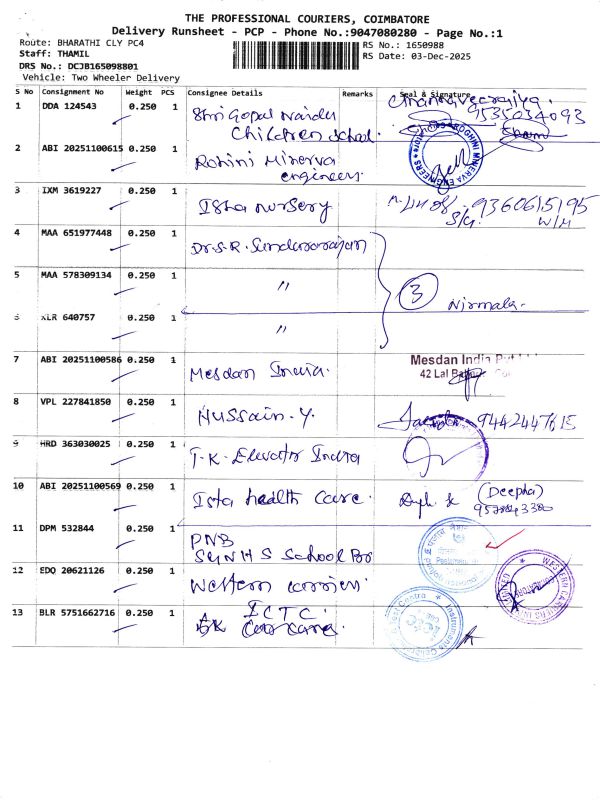 THE PROFESSIONAL COURIERS, COIMBATORE
Delivery Runsheet - PCP - Phone No.:9047080280 - Page No.:1
Route: BHARATHI CLY PC4 RS No.: 1650988
Staff: THAMIL RS Date: 03-Dec-2025
DRS No.: DCJB165098801
Vehicle: Two Wheeler Delivery
S No Consignment No Weight PCS Consignee Details Remarks Seal & Signature
1 DDA 124543 0.250 1 Shri Gopal Naidu 9535034093
Children School.
2 ABI 20251100615 0.250 1 Rohini Minerva
engineers.
3 IXM 3619227 0.250 1 Isha nursery 9360615195
S/G. W/M
4 MAA 651977448 0.250 1 Dr. S.R. Sundararajan
5 MAA 578309134 0.250 1 〃 3 Nirmala.
6 XLR 640757 0.250 1 〃
7 ABI 20251100586 0.250 1 Mesdan India. Mesdan India Pvt
42 Lal
8 VPL 227841850 0.250 1 Hussain. Y. 9442447615
9 HRD 363030025 0.250 1 T.K. Elevator India
10 ABI 20251100569 0.250 1 Isha health care. (Deepha)
11 DPM 532844 0.250 1 PNB
School
12 EDQ 20621126 0.250 1 Western carrier.
13 BLR 5751662716 0.250 1 ICTC.